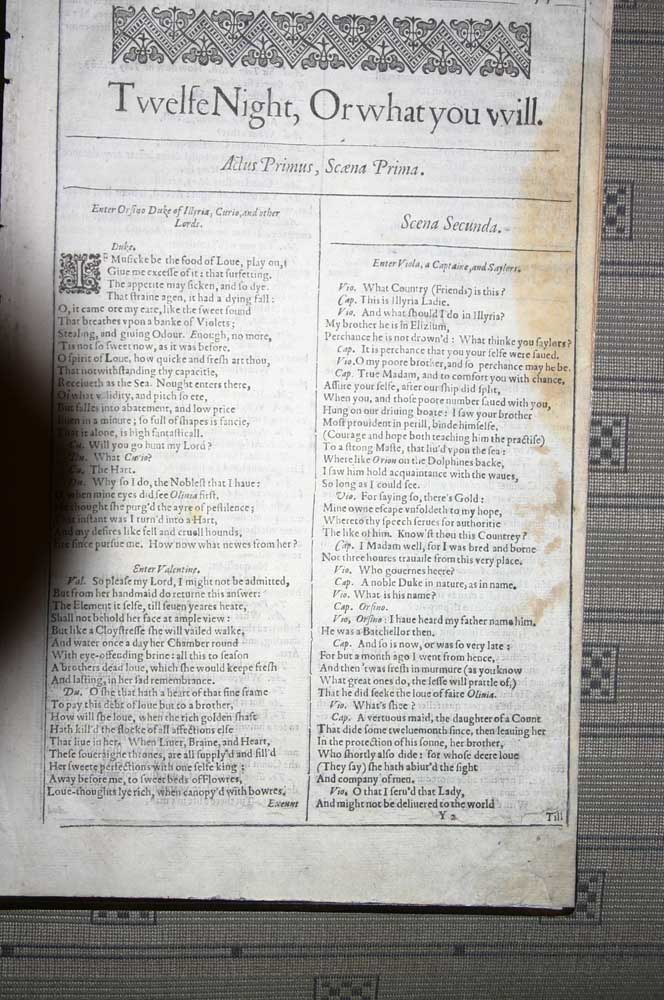 Twelfe Night, Or what you will.
Actus Primus, Scæna Prima.
Enter Orſino Duke of Illyria, Curio, and other
Lords.
Duke.
IF Muſicke be the food of Loue, play on,
Giue me exceſſe of it: that ſurfetting,
The appetite may ſicken, and ſo dye.
That ſtraine agen, it had a dying fall:
O, it came ore my eare, like the ſweet ſound
That breathes vpon a banke of Violets;
Stealing, and giuing Odour. Enough, no more,
'Tis not ſo ſweet now, as it was before.
O ſpirit of Loue, how quicke and freſh art thou,
That notwithſtanding thy capacitie,
Receiueth as the Sea. Nought enters there,
Of what validity, and pitch ſo ere,
But falles into abatement, and low price
Euen in a minute; ſo full of ſhapes is fancie,
That it alone, is high fantaſticall.
Cu. Will you go hunt my Lord?
Du. What Curio?
Cu. The Hart.
Du. Why ſo I do, the Nobleſt that I haue:
O when mine eyes did ſee Oliuia firſt,
Me thought ſhe purg'd the ayre of peſtilence;
That inſtant was I turn'd into a Hart,
And my deſires like fell and cruell hounds,
Ere ſince purſue me. How now what newes from her?
Enter Valentine.
Val. So pleaſe my Lord, I might not be admitted,
But from her handmaid do returne this anſwer:
The Element it ſelfe, till ſeuen yeares heate,
Shall not behold her face at ample view:
But like a Cloyſtreſſe ſhe will vailed walke,
And water once a day her Chamber round
With eye-offending brine: all this to ſeaſon
A brothers dead loue, which ſhe would keepe freſh
And laſting, in her ſad remembrance.
Du. O ſhe that hath a heart of that fine frame
To pay this debt of loue but to a brother,
How will ſhe loue, when the rich golden ſhaft
Hath kill'd the flocke of all affections elſe
That liue in her. When Liuer, Braine, and Heart,
Theſe ſoueraigne thrones, are all ſupply'd and fill'd
Her ſweete perfections with one ſelfe king:
Away before me, to ſweet beds of Flowres,
Loue-thoughts lye rich, when canopy'd with bowres.
Exeunt
Scena Secunda.
Enter Viola, a Captaine, and Saylors.
Vio. What Country (Friends) is this?
Cap. This is Illyria Ladie.
Vio. And what ſhould I do in Illyria?
My brother he is in Elizium,
Perchance he is not drown'd: What thinke you ſaylors?
Cap. It is perchance that you your ſelfe were ſaued.
Vio. O my poore brother, and ſo perchance may he be.
Cap. True Madam, and to comfort you with chance,
Aſſure your ſelfe, after our ſhip did ſplit,
When you, and thoſe poore number ſaued with you,
Hung on our driuing boate: I ſaw your brother
Moſt prouident in perill, binde himſelfe,
(Courage and hope both teaching him the practiſe)
To a ſtrong Maſte, that liu'd vpon the ſea:
Where like Orion on the Dolphines backe,
I ſaw him hold acquaintance with the waues,
So long as I could ſee.
Vio. For ſaying ſo, there's Gold:
Mine owne eſcape vnfoldeth to my hope,
Whereto thy ſpeech ſerues for authoritie
The like of him. Know'ſt thou this Countrey?
Cap. I Madam well, for I was bred and borne
Not three houres trauaile from this very place.
Vio. Who gouernes heere?
Cap. A noble Duke in nature, as in name.
Vio. What is his name?
Cap. Orſino.
Vio. Orſino: I haue heard my father name him.
He was a Batchellor then.
Cap. And ſo is now, or was ſo very late:
For but a month ago I went from hence,
And then 'twas freſh in murmure (as you know
What great ones do, the leſſe will prattle of,)
That he did ſeeke the loue of faire Oliuia.
Vio. What's ſhee?
Cap. A vertuous maid, the daughter of a Count
That dide ſome tweluemonth ſince, then leauing her
In the protection of his ſonne, her brother,
Who ſhortly alſo dide: for whoſe deere loue
(They ſay) ſhe hath abiur'd the ſight
And company of men.
Vio. O that I ſeru'd that Lady,
And might not be deliuered to the world
Y 2
Till